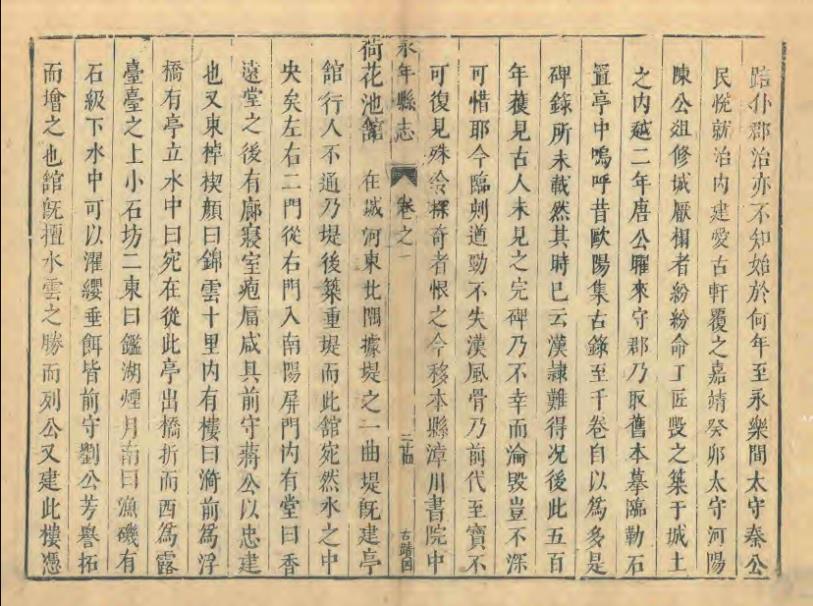 踣仆郡治亦不知始於何年至永樂間太守秦公
民悅就治內建愛古軒覆之嘉靖癸卯太守河陽
陳公俎修城厭榻者紛紛命工匠毀之築于城土
之內越二年唐公曜來守郡乃取舊本摹臨勒石
置亭中嗚呼昔歐陽集古錄至千卷自以爲多是
碑錄所未載然其時已云漢隸難得况後此五百
年獲見古人未見之完碑乃不幸而淪毀豈不深
可惜耶今臨刻遒勁不失漢風骨乃前代至寶不
可復見殊令探奇者恨之今移本縣漳川書院中
永年縣志 卷之一 二十四 古蹟図
荷花池館 在城河東北隅據堤之一曲堤旣建亭
館行人不通乃堤後築重堤而此館宛然水之中
央矣左右二門從右門入南陽屏門內有堂曰香
遠堂之後有廊寢室庖湢咸具前守蔣公以忠建
也又東棹楔顏曰錦雲十里內有樓曰漪前爲浮
橋有亭立水中曰宛在從此亭出橋折而西爲露
臺臺之上小石坊二東曰鑑湖煙月南曰漁磯有
石級下水中可以濯纓垂餌皆前守劉公芳譽拓
而增之也館旣擅水雲之勝而列公又建此樓憑